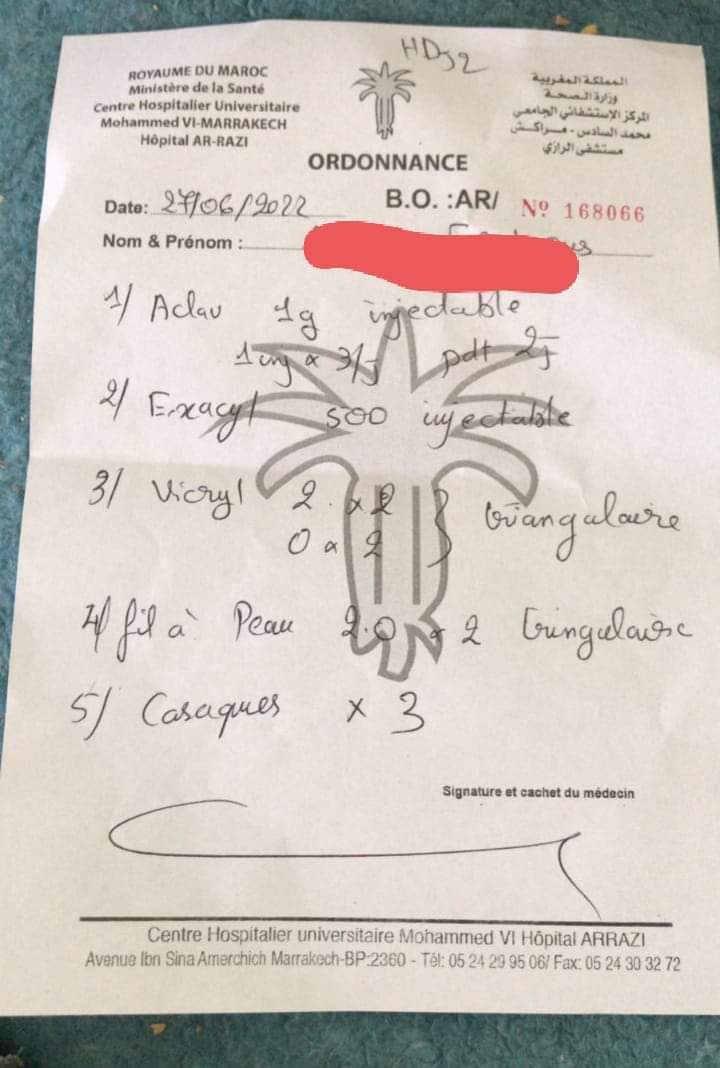 HDJ2
ROYAUME DU MAROC
Ministère de la Santé
Centre Hospitalier Universitaire
Mohammed VI-MARRAKECH
Hôpital AR-RAZI
المملكة المغربية
وزارة الصحة
المركز الإستشفائي الجامعي
محمد السادس - مراكش
مستشفى الرازي
ORDONNANCE
Date: 27/06/2022
B.O. :AR/ Nº 168066
Nom & Prénom :
1/ Aclav 1g injectable
1 inj x 3/j pdt 2j
2/ Exacyl 500 injectable
3/ Vicryl 2 x 2
0 x 2 } triangulaire
4/ fil à Peau 2.0 x 2 tringulaire
5/ Casaques x 3
Signature et cachet du médecin
Centre Hospitalier universitaire Mohammed VI Hôpital ARRAZI
Avenue Ibn Sina Amerchich Marrakech-BP:2360 - Tél: 05 24 29 95 06/ Fax: 05 24 30 32 72